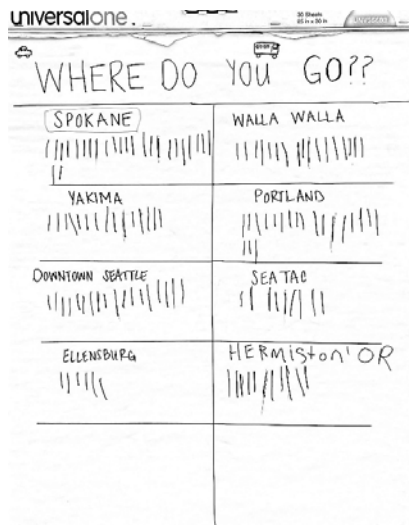 universalone.
30 Sheets
25 in x 30 in
UNV35603
WHERE DO YOU GO??
SPOKANE
WALLA WALLA
YAKIMA
PORTLAND
DOWNTOWN SEATTLE
SEATAC
ELLENSBURG
HERmiston' OR